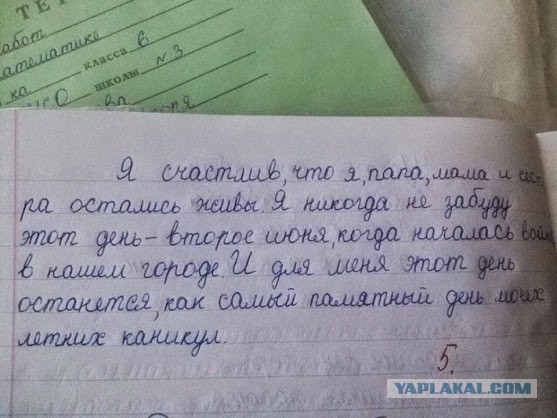 ТЕТ
работ
математике
класса 6
школы №3
Я счастлив, что я, папа, мама и сест-
ра остались живы. Я никогда не забуду
этот день - второе июня, когда началась война
в нашем городе. И для меня этот день
останется, как самый памятный день моих
летних каникул.
5.
YAPLAKAL.COM